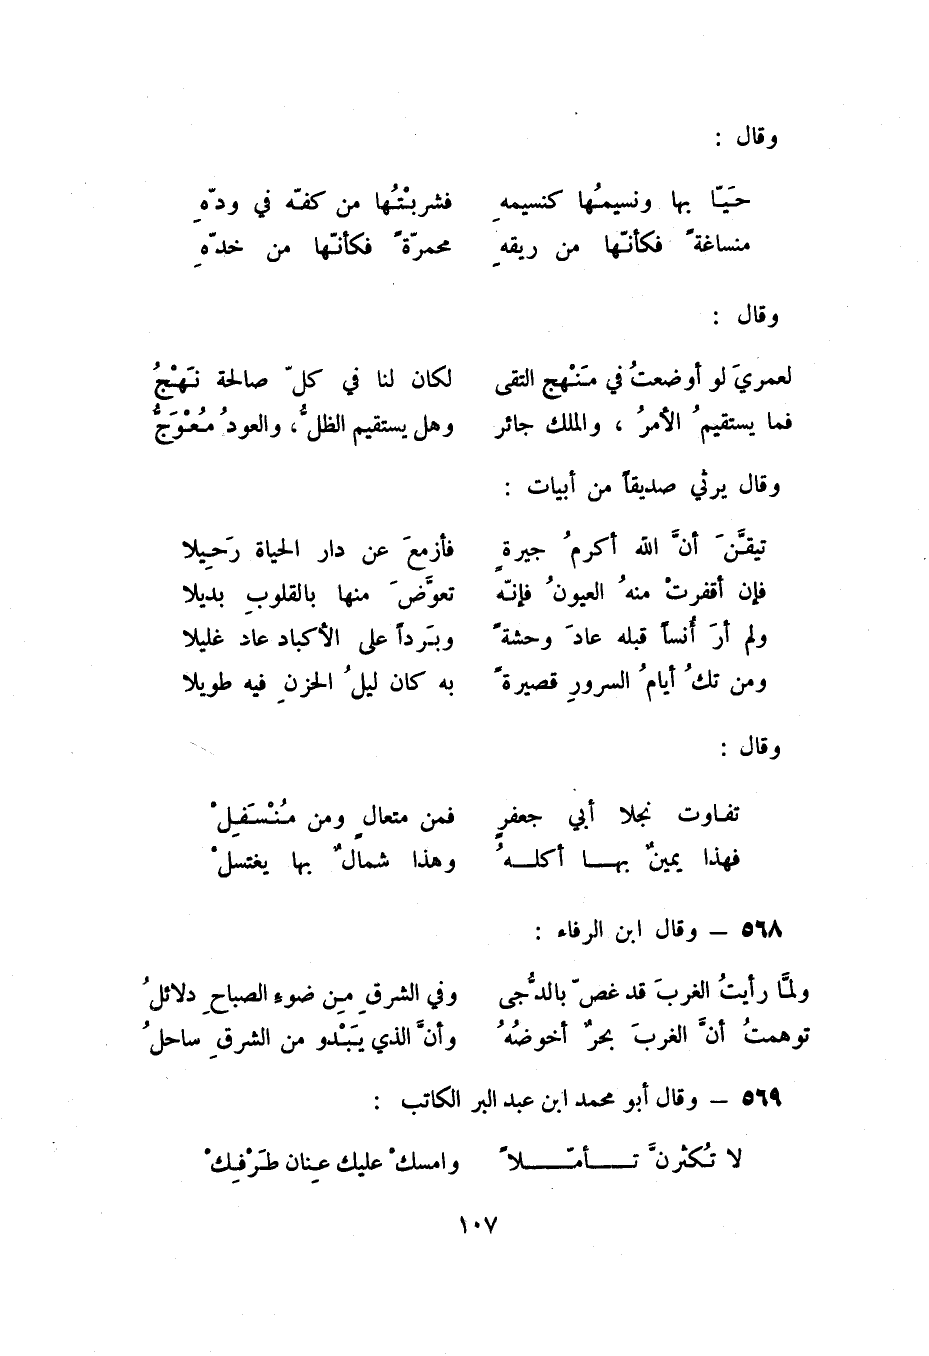 وقال :
حَيّا بها ونسيمُها كنسيمهِ فشربْتُها من كفّه في ودّهِ
منساغةً فكأنّها من ريقهِ محمرّةً فكأنّها من خدّهِ
وقال :
لعمريَ لو أوضعتُ في مَنْهج التقى لكان لنا في كلّ صالحة نَهْجُ
فما يستقيمُ الأمرُ ، والملك جائر وهل يستقيم الظلُّ ، والعودُ مُعْوَجُّ
وقال يرثي صديقاً من أبيات :
تيقَّنَ أنَّ الله أكرمُ جيرةٍ فأزمعَ عن دار الحياة رَحِيلا
فإن أقفرتْ منهُ العيونُ فإنّه تعوَّضَ منها بالقلوبِ بديلا
ولم أرَ أُنساً قبله عادَ وحشةً وبَرداً على الأكباد عاد غليلا
ومن تكُ أيامُ السرورِ قصيرةً به كان ليلُ الحزنِ فيه طويلا
وقال :
تفاوت نجلا أبي جعفرٍ فمن متعالٍ ومن مُنْسَفِلْ
فهذا يمينٌ بهـــا أكلـــهُ وهذا شمالٌ بها يغتسلْ
٥٦٨ – وقال ابن الرفاء :
ولمَّا رأيتُ الغربَ قد غصّ بالدُّجى وفي الشرقِ مِن ضوءِ الصباحِ دلائلُ
توهمتُ أنَّ الغربَ بحرٌ أخوضُهُ وأنَّ الذي يَبْدو من الشرقِ ساحلُ
٥٦٩ – وقال أبو محمد ابن عبد البر الكاتب :
لا تُكثرنَّ تـــــأمّـــــلاً وامسكْ عليك عِنان طَرْفِكْ
١٠٧